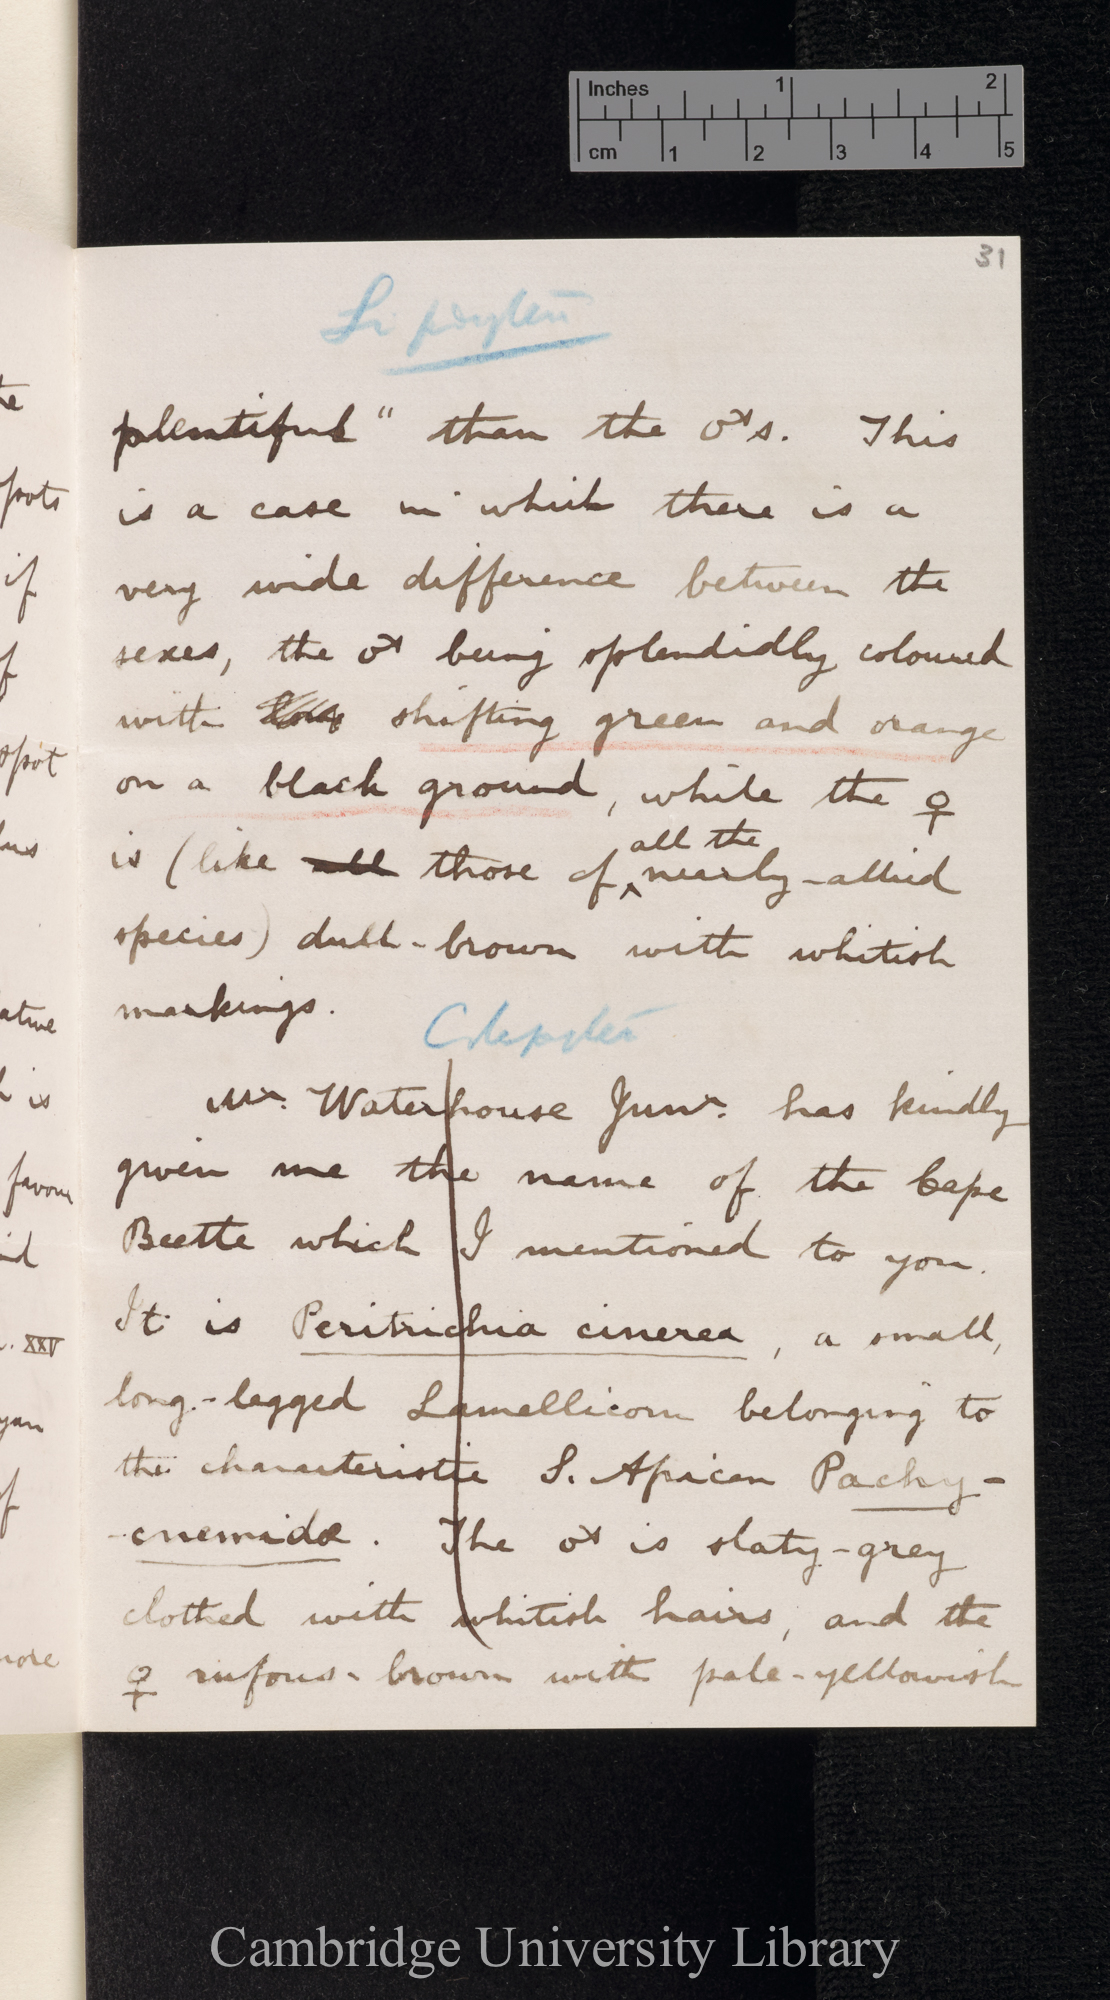 Inches 1 2
cm 1 2 3 4 5
31
plentiful" than the ♂s. This
is a case in which there is a
very wide difference between the
sexes, the ♂ being splendidly coloured
with shifting green and orange
on a black ground, while the ♀
is (like all those of all the nearly-allied
species) dull-brown with whitish
markings.
Coleoptera
Mr. Waterhouse Junr. has kindly
given me the name of the Cape
Beetle which I mentioned to you.
It is Peritrichia cinerea, a small,
long-legged Lamellicorn belonging to
the characteristic S. African Pachy-
-cnemidæ. The ♂ is slaty-grey
clothed with whitish hairs, and the
♀ rufous-brown with pale-yellowish
te
spots
if
f
spot
ative
is
favour
id
XXV
f
more
Cambridge University Library